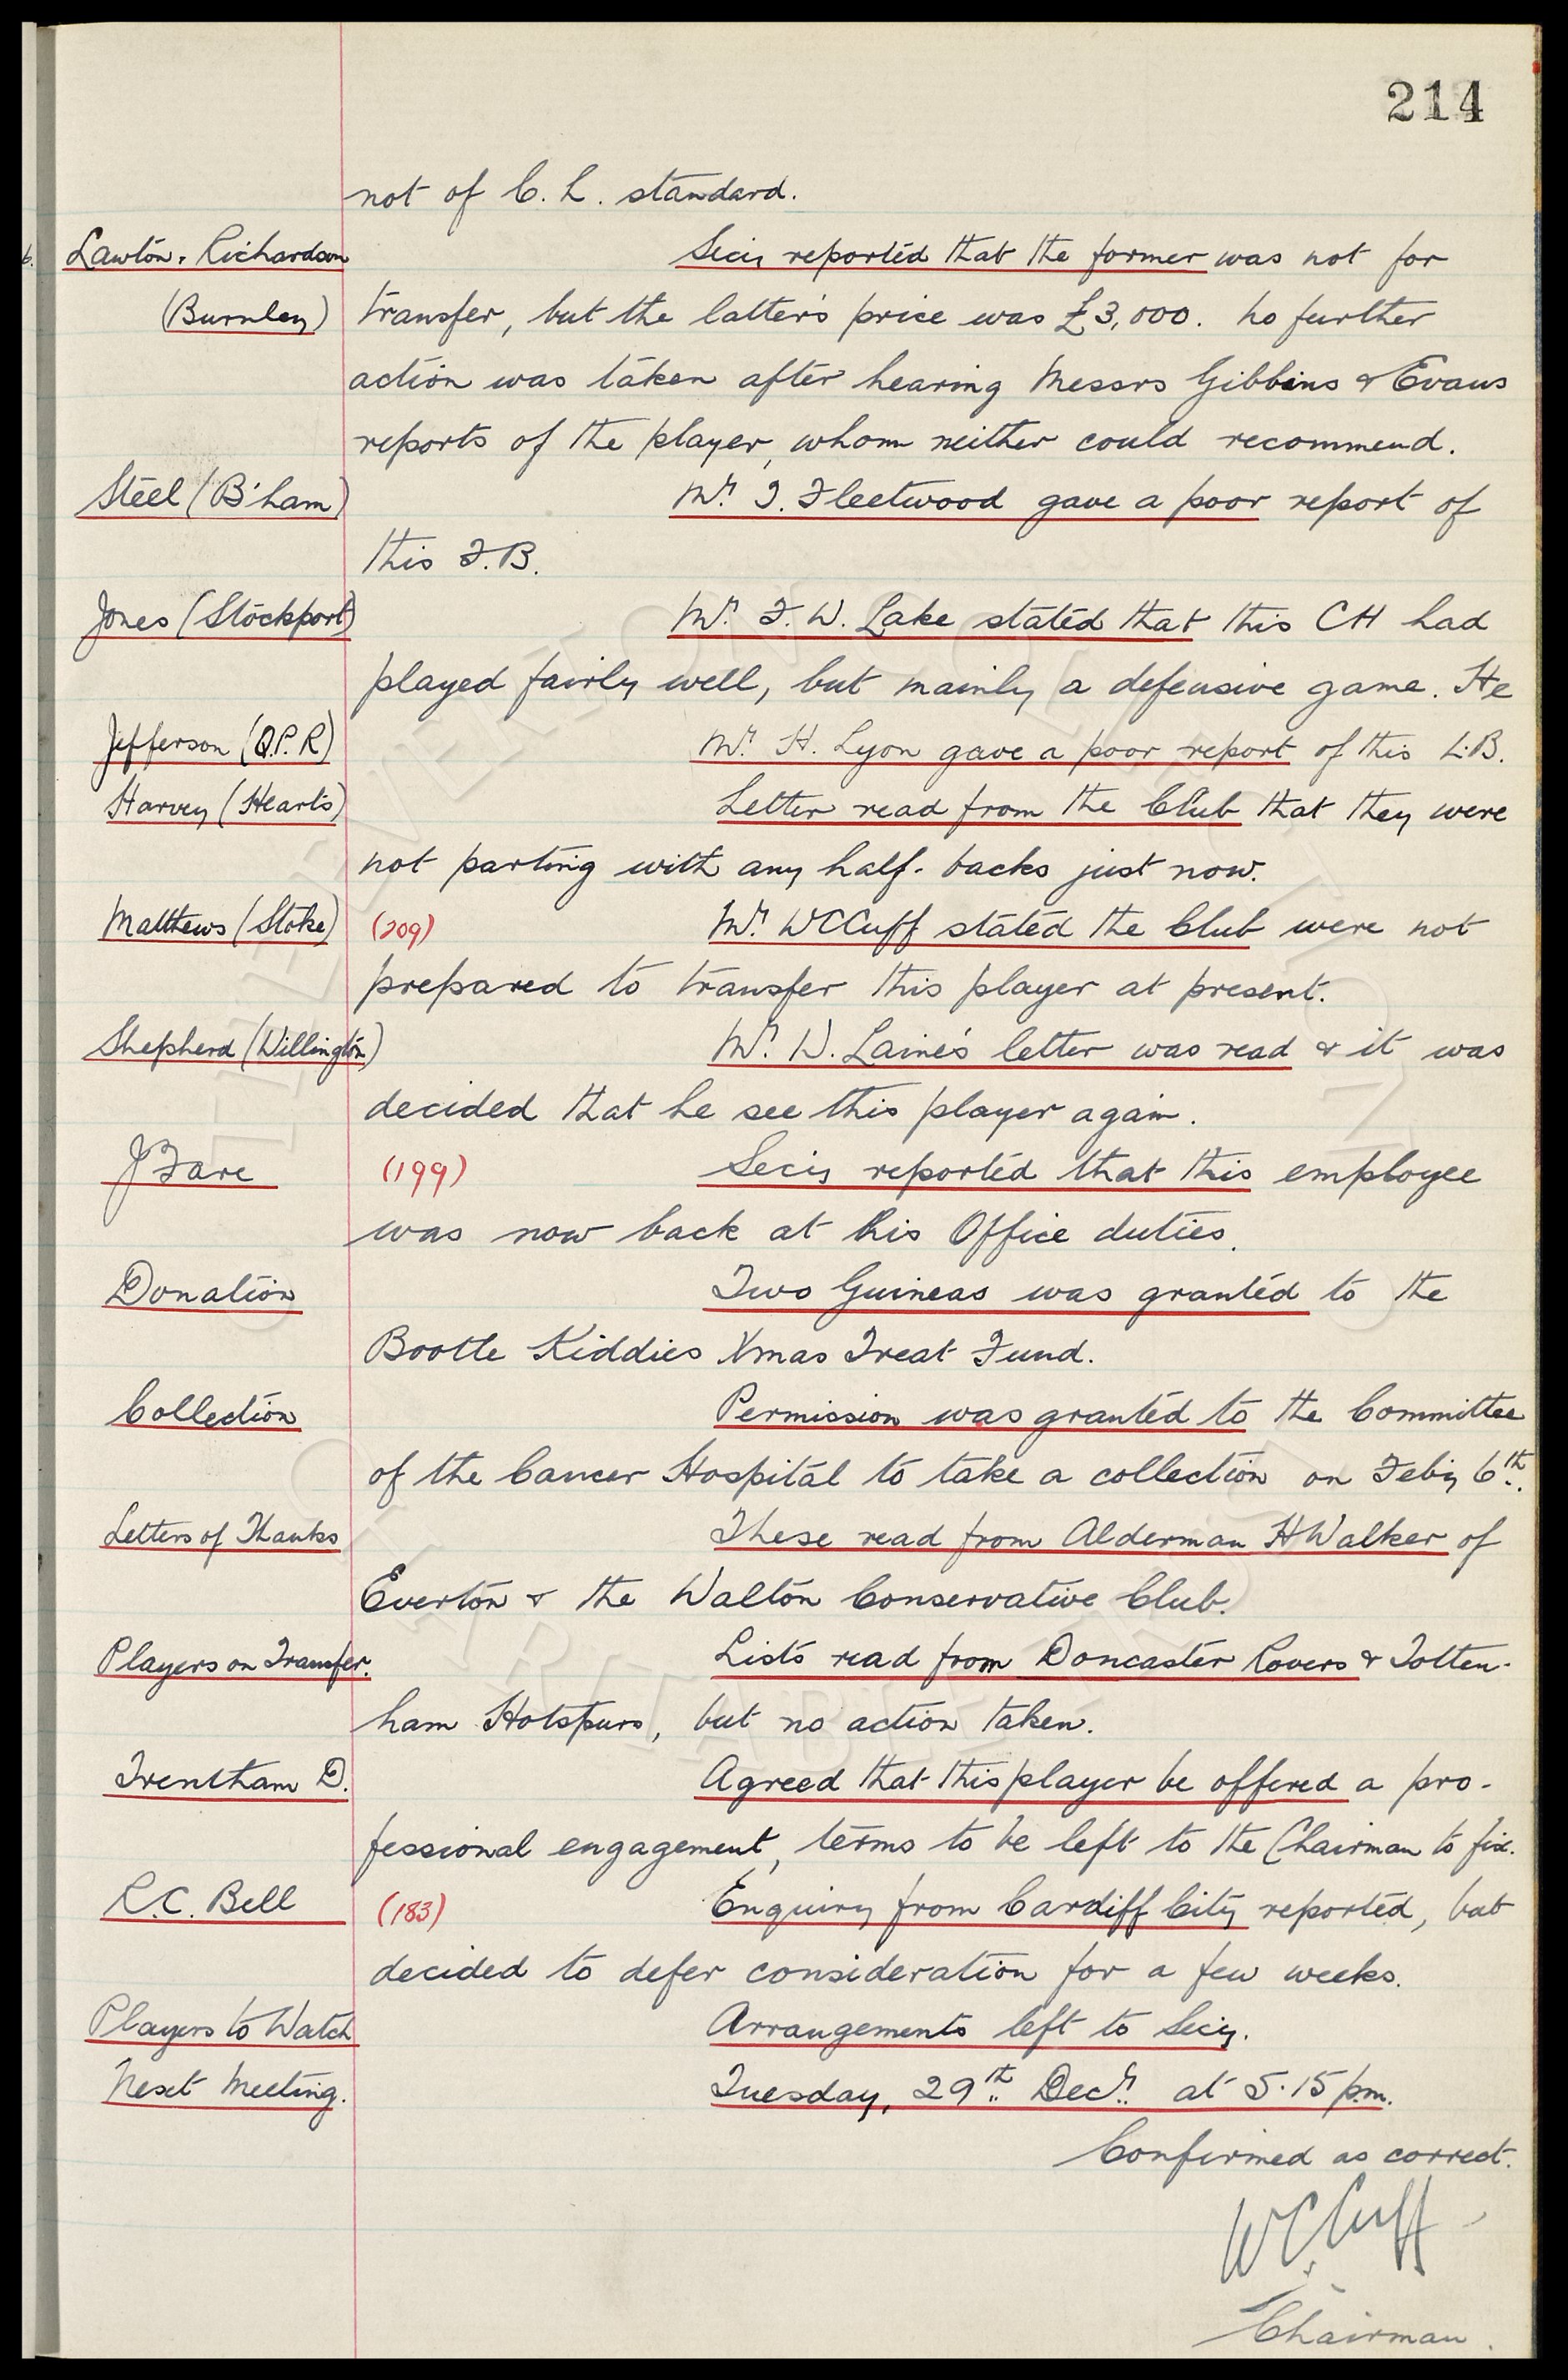 214
not of C. L. standard.
Lawton & Richardson Secy reported that the former was not for
(Burnley) transfer, but the latter's price was £3,000. No further
action was taken after hearing Messrs Gibbins & Evans
reports of the player, whom neither could recommend.
Steel (B'ham) Mr. T. Fleetwood gave a poor report of
this F.B.
Jones (Stockport) Mr. F. W. Lake stated that this CH had
played fairly well, but mainly a defensive game. He
Jefferson (Q.P.R) Mr. H. Lyon gave a poor report of this L.B.
Harvey (Hearts) Letter read from the Club that they were
not parting with any half-backs just now.
Matthews (Stoke) (209) Mr. WCCuff stated the Club were not
prepared to transfer this player at present.
Shepherd (Willington) Mr. W. Laine's letter was read & it was
decided that he see this player again.
J Fare (199) Secy reported that this employee
was now back at his Office duties.
Donation Two Guineas was granted to the
Bootle Kiddies Xmas Treat Fund.
Collection Permission was granted to the Committee
of the Cancer Hospital to take a collection on Feby 6th.
Letters of Thanks These read from Alderman H Walker of
Everton & the Walton Conservative Club.
Players on Transfer. Lists read from Doncaster Rovers & Totten-
ham Hotspurs, but no action taken.
Trentham D. Agreed that this player be offered a pro-
fessional engagement, terms to be left to the Chairman to fix.
R.C. Bell (183) Enquiry from Cardiff City reported, but
decided to defer consideration for a few weeks.
Players to Watch Arrangements left to Secy.
Next Meeting. Tuesday, 29th Decr. at 5.15 p.m.
Confirmed as correct.
WCCuff
Chairman.